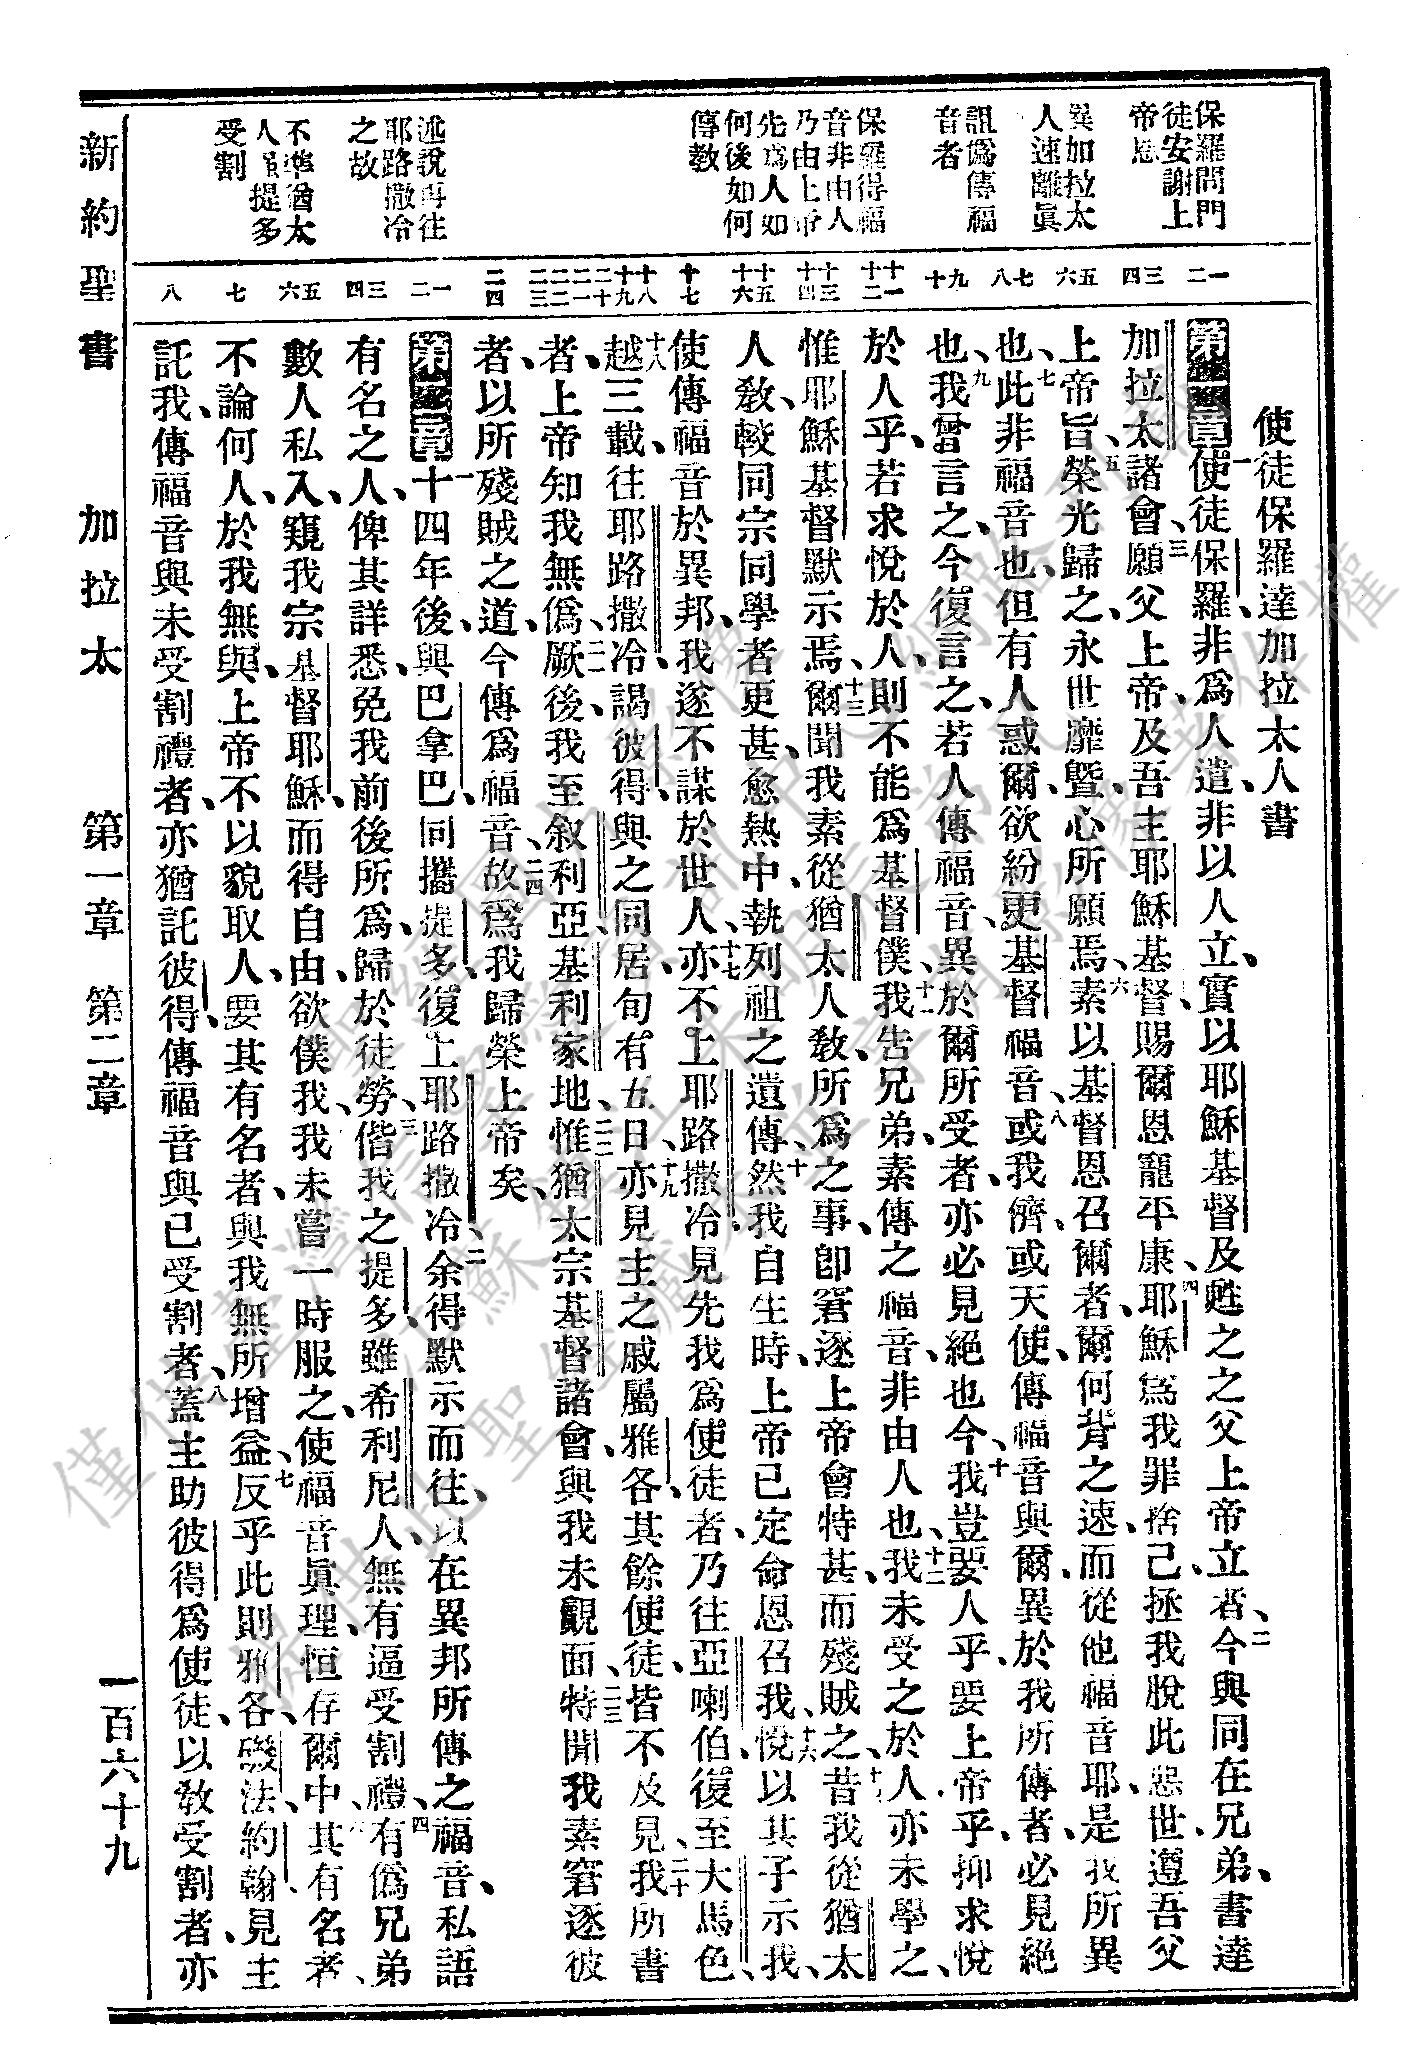 保羅問門
徒安謝上
帝恩
異加拉太
人速離眞
詛僞傳福
音者
保羅得福
音非由人
乃由上帝
先爲人如
何後如何
傳教
述說再往
耶路撒冷
之故
不準猶太
人強提多
受割
一二
三四
五六
七八
九十
十一十二
十三十四
十五十六
十七
十八十九二十
二一二二二三
二四
一二
三四
五六
七
八
使徒保羅達加拉太人書
第一章一使徒保羅、非爲人遣、非以人立、實以耶穌基督、及甦之之父上帝立者、二今與同在兄弟、書達
加拉太諸會、三願父上帝、及吾主耶穌基督、賜爾恩寵平康、四耶穌爲我罪捨己、拯我脫此惡世、遵吾父
上帝旨、五榮光歸之、永世靡曁、心所願焉、六素以基督恩召爾者、爾何背之速、而從他福音耶、是我所異
也、七此非福音也、但有人惑爾、欲紛更基督福音、八或我儕、或天使、傳福音與爾、異於我所傳者、必見絕
也、九我曾言之、今復言之、若人傳福音、異於爾所受者、亦必見絕也、十今我豈要人乎、要上帝乎、抑求悅
於人乎、若求悅於人、則不能爲基督僕、十一我告兄弟、素傳之福音、非由人也、十二我未受之於人、亦未學之、
惟耶穌基督默示焉、十三爾聞我素從猶太人敎、所爲之事、卽窘逐上帝會特甚、而殘賊之、十四昔我從猶太
人敎、較同宗同學者更甚、愈熱中、執列祖之遺傳、十五然我自生時、上帝已定命恩召我、十六悅以其子示我、
使傳福音於異邦、我遂不謀於世人、十七亦不上耶路撒冷、見先我爲使徒者、乃往亞喇伯、復至大馬色、
十八越三載、往耶路撒冷、謁彼得、與之同居旬有五日、十九亦見主之戚屬雅各、其餘使徒、皆不及見、二十我所書
者、上帝知我無僞、二一厥後、我至叙利亞基利家地、二二惟猶太宗基督諸會、與我未覿面、二三特聞我素窘逐彼
者、以所殘賊之道、今傳爲福音、二四故爲我歸榮上帝矣、
第二章一十四年後、與巴拿巴、同攜提多、復上耶路撒冷、二余得默示而往、以在異邦所傳之福音、私語
有名之人、俾其詳悉、免我前後所爲、歸於徒勞、三偕我之提多、雖希利尼人、無有逼受割禮、四有僞兄弟
數人私入、窺我宗基督耶穌、而得自由、欲僕我、五我未嘗一時服之、使福音眞理、恒存爾中、六其有名者、
不論何人、於我無與、上帝不以貌取人、要其有名者、與我無所增益、七反乎此、則雅各、磯法、約翰、見主
託我、傳福音與未受割禮者、亦猶託彼得、傳福音與已受割者、八蓋主助彼得爲使徒、以敎受割者、亦
新約聖書
加拉太
第一章 第二章
一百六十九